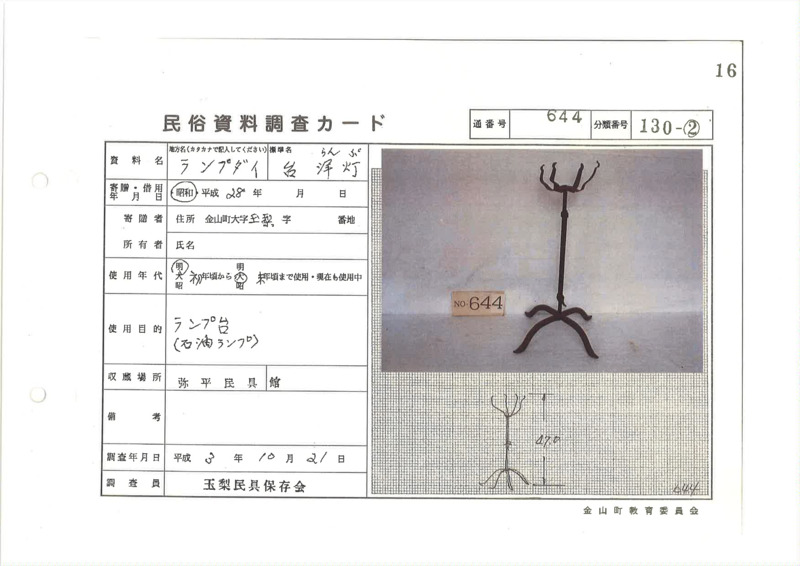 16
民俗資料調査カード
通番号 644 分類番号 130-②
資料名 地方名(カタカナで記入してください) ランプダイ 標準名 台洋灯 らんぷ
寄贈・借用年月日 昭和 平成 28年 月 日
寄贈者 住所 金山町大字玉梨字 番地
所有者 氏名
使用年代 明大昭 初年頃から 明大昭 末年頃まで使用・現在も使用中
使用目的 ランプ台
(石油ランプ)
収蔵場所 弥平民具館
備考
調査年月日 平成 3年 10月 21日
調査員 玉梨民具保存会
NO.644
47.0
644
金山町教育委員会